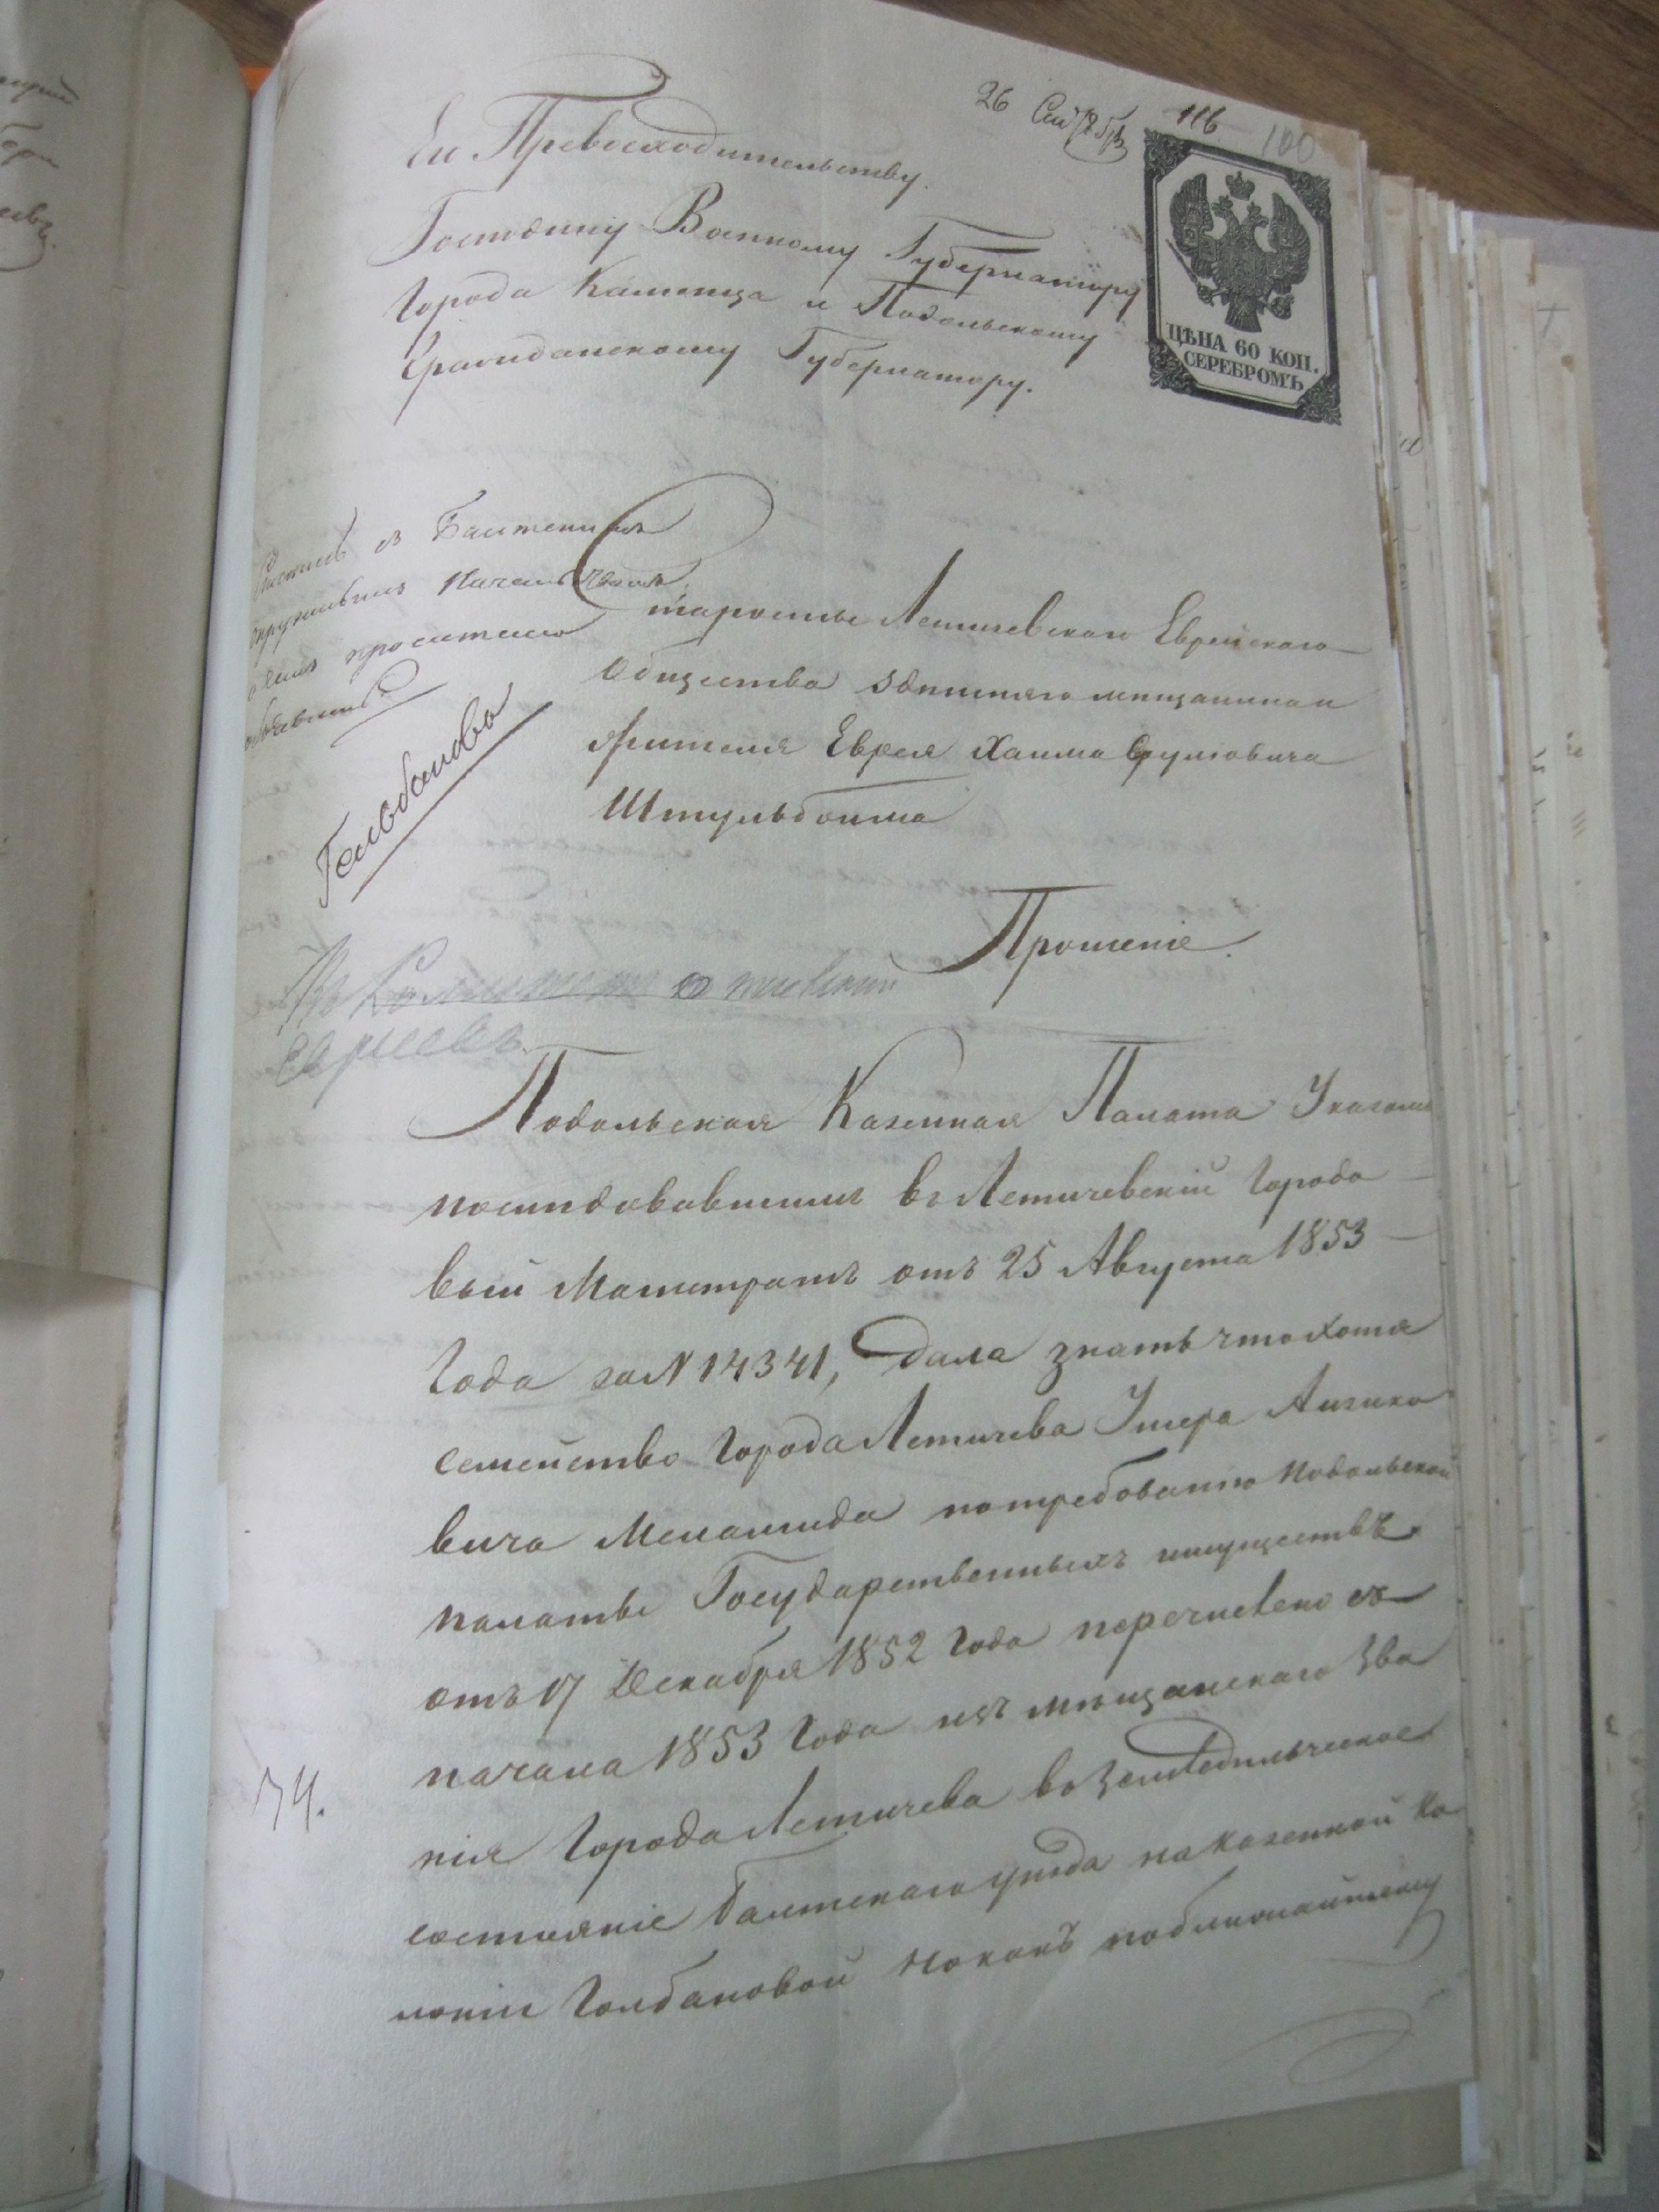 26 Сентября
116
100
Ею Превосходительству.
Господину Военному Губернатору
Города Каменца и Подольскому
Гражданскому Губернатору.
ЦѢНА 60 КОП.
СЕРЕБРОМЪ
съ Балтскимъ
окружнымъ Начальствомъ
просителю
объявить
Гольбановъ
Старосты Летичевскаго Еврейскаго
Общества здѣшняго мѣщанина и
жителя Еврея Хаима Сруловича
Штульбойма
Прошеніе.
Въ Комитетъ о
Евреевъ.
Подольская Казенная Палата Указомъ
послѣдовавшимъ въ Летичевскій Городо
вый Магистратъ отъ 25 Августа 1853
Года за N 14341, дала знать что хотя
семейство Города Летичева Умера Айзико
вича Меламида по требованію Подольской
палаты Государственныхъ имуществъ
отъ 17 Декабря 1852 Года перечислено съ
начала 1853 Года изъ мѣщанскаго зва
нія Города Летичева въ Земледѣльческое
состояніе Балтскаго уѣзда на казенной ко
лоніи Голбановой но какъ по ближайшему
34.